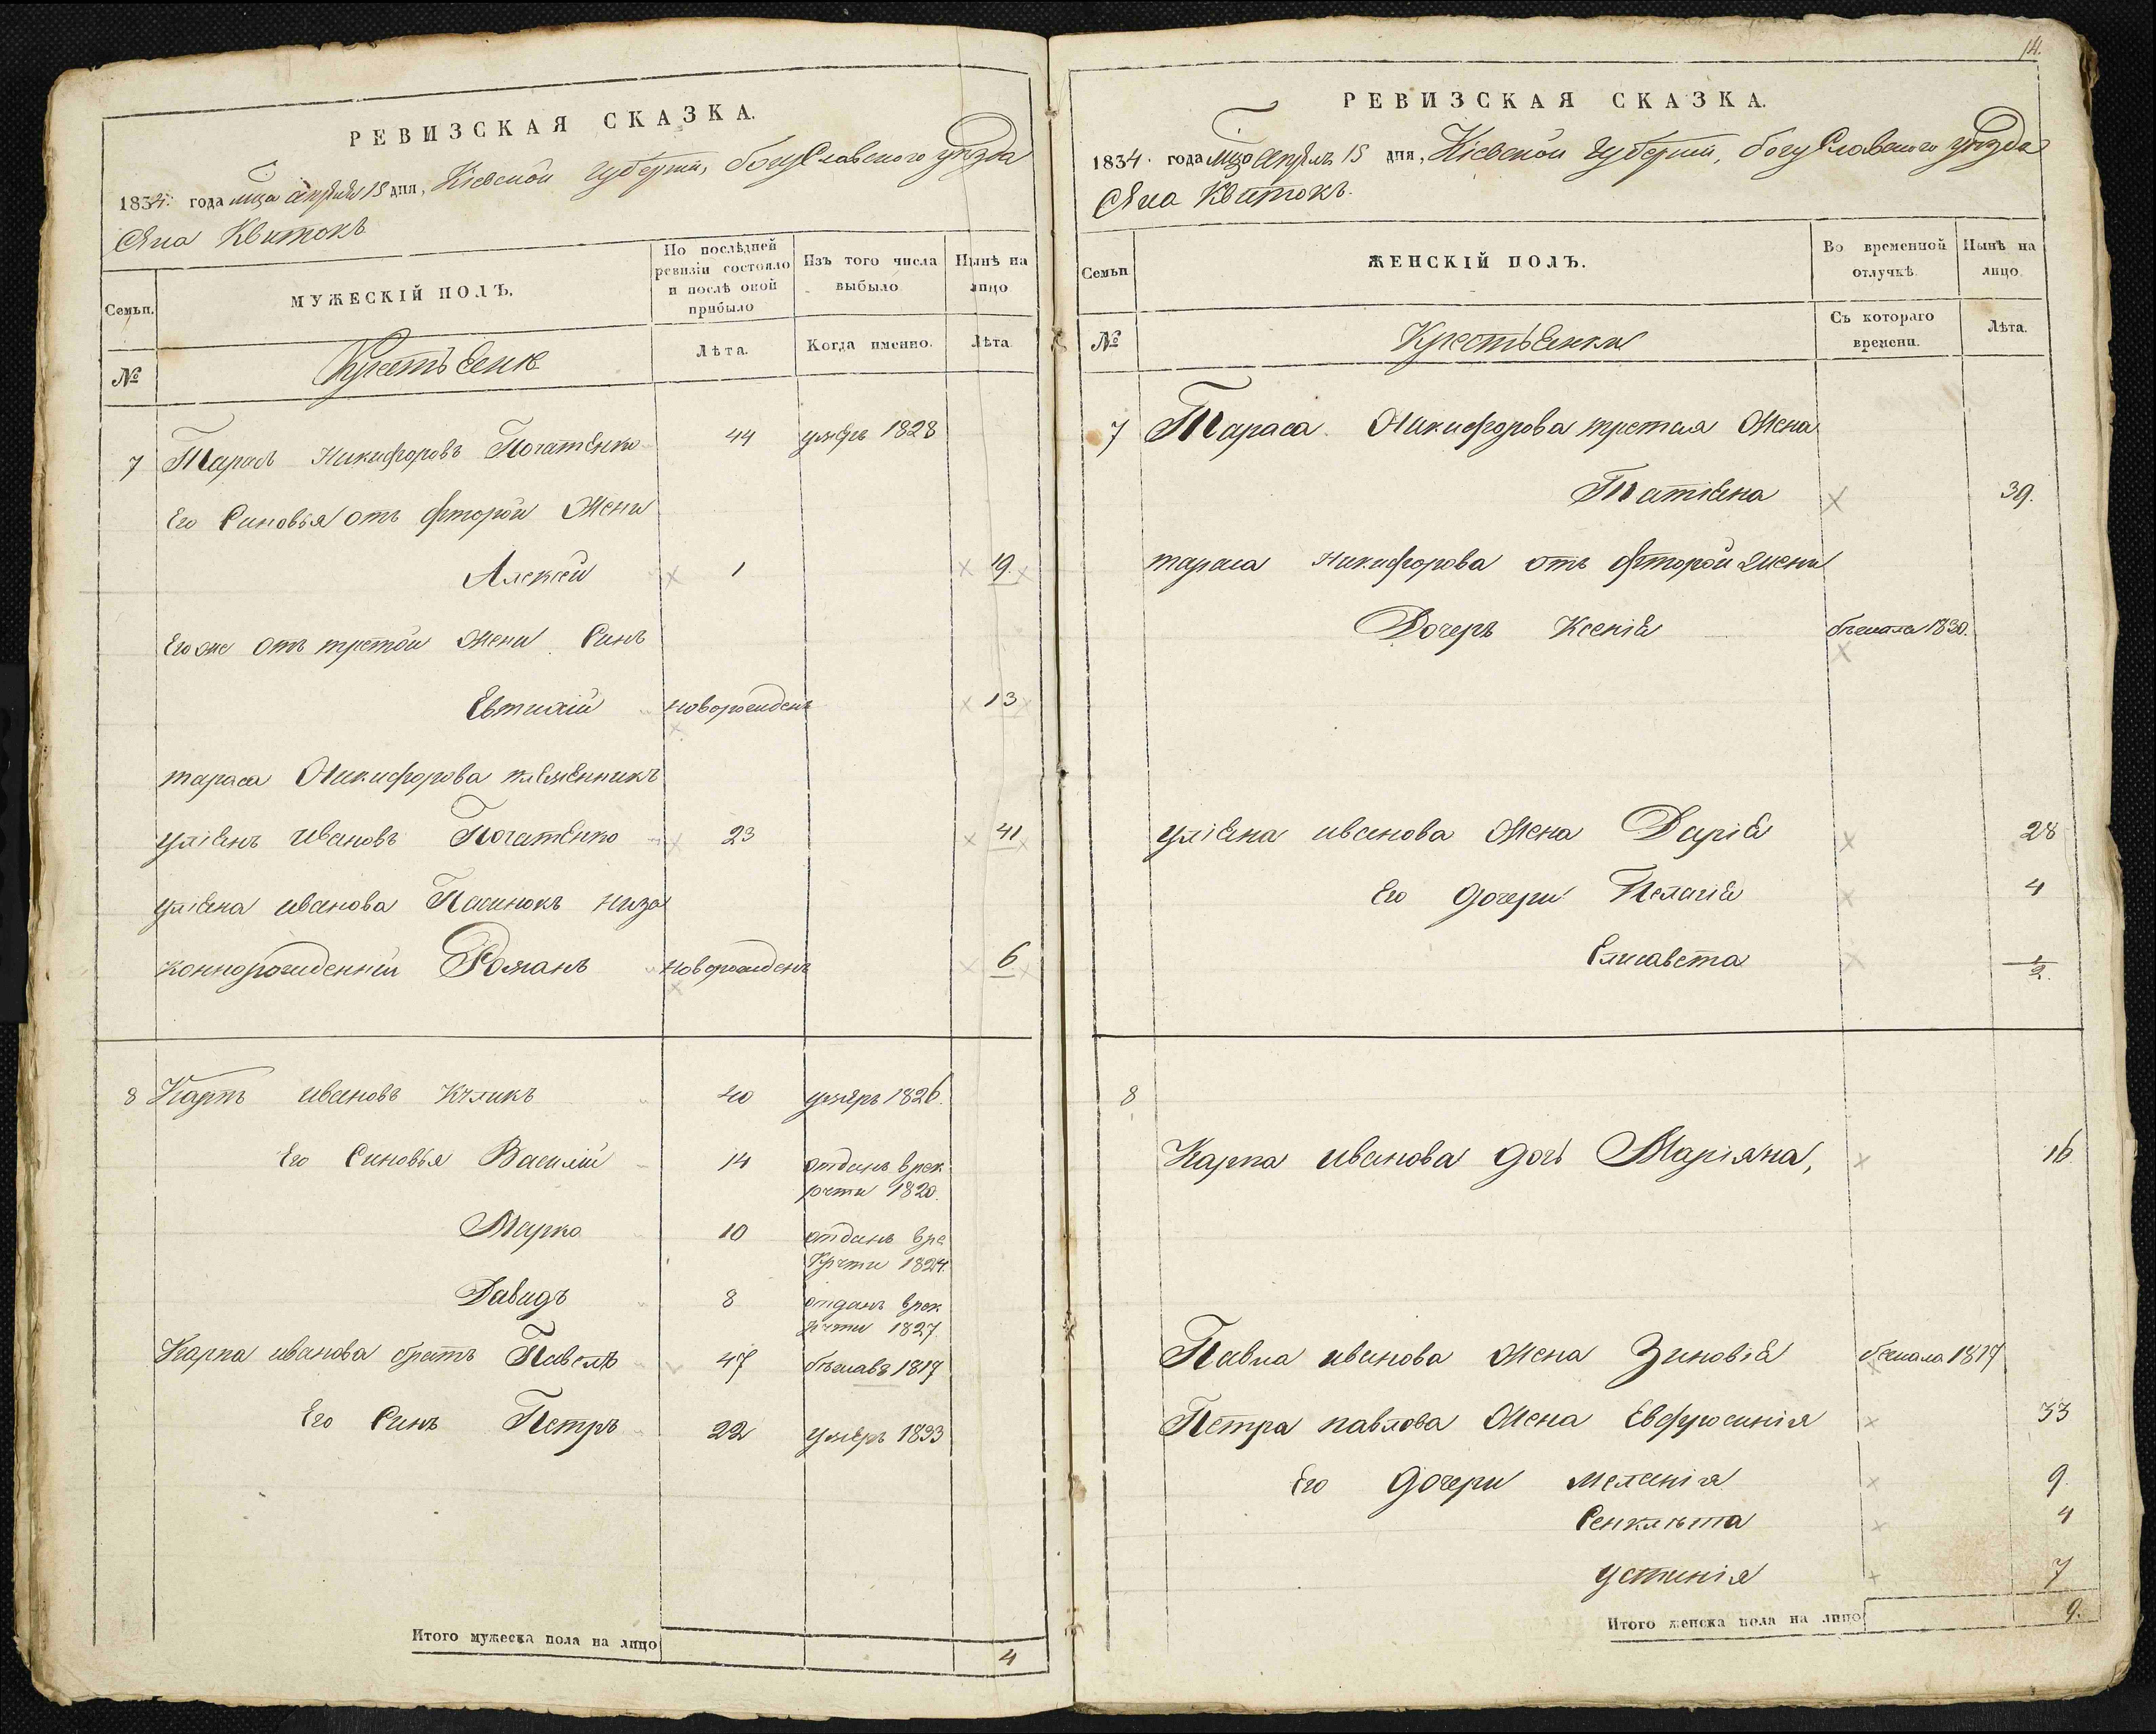 РЕВИЗСКАЯ СКАЗКА.
1834. года мца апреля 15 дня, Кіевской губерніи, богуславского уезда
Села Квитокъ
Семьи.
МУЖЕСКІЙ ПОЛЪ.
По послѣдней ревизіи состояло и послѣ оной прибыло
Изъ того числа выбыло
Нынѣ на лицо
№
Крестьяне
Лѣта.
Когда именно.
Лѣта
7 Тарасъ Никифоровъ Початенко 44 умеръ 1828
Его Синовья отъ фторой Жени
Алексей 1 19.
Его же отъ третой жени Синъ
Евтихій новорожденъ 13
тараса Никифорова племенникъ
уліянъ ивановъ Початенко 23 41
уліяна иванова Пасинокъ низа
коннорожденній Романъ новорожденъ 6
8 Карпъ ивановъ 40 умеръ 1826.
Его Синовья Василій 14 отданъ врек
рути 1820.
Марко 10 отданъ вре
крути 1824.
Давидъ 8 отданъ врек
рути 1827
Карпа иванова братъ Павелъ 47 бежавъ 1817
Его Синъ Петръ 22 умеръ 1833
Итого мужеска пола на лицо 4
14.
РЕВИЗСКАЯ СКАЗКА.
1834. года мца апрель 15 дня, Кіевской губерніи, богуславского уезда
Села Квитокъ.
Семьи
ЖЕНСКІЙ ПОЛЪ.
Во временной отлучкѣ.
Нынѣ на лицо
№
Крестьянки
Съ котораго времени.
Лѣта.
7 Тараса Никифорова третая Жена
Татіяна 39.
тараса никифорова отъ фторой жени
Дочеръ Ксенія бежала 1830.
уліяна иванова Жена Дарія 28
Его дочери Пелагія 4
Елисавета 1/2.
8
Карпа иванова дочь Маріяна, 16
Павла иванова Жена Зиновія бежала 1817
Петра павлова Жена Евфросинія 33
Его дочери Меланія 9
Сенклѣта 4
Устинія 7
Итого женска пола на лицо 9.